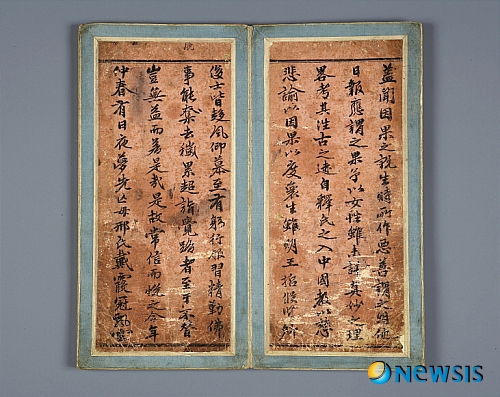 盖聞因果之説生時所作惡善謂之因他
日報應謂之果予以女性雖未詳真妙之理
畧考其往古之迹自釋氏之入中國教以慈
悲諭以因果以度衆生雖明王
俊士皆趍風仰慕至有躬行服習精勤佛
事能棄去穢累超詣覺路者至于不
豈無益而若是哉是故常信而悅之今年
仲春有日夜夢先亡母邢氏戴霞冠飄
NEWSIS